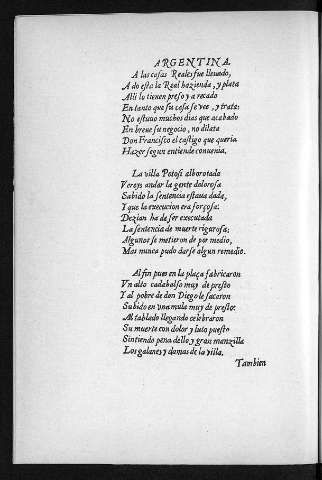 ARGENTINA.
A las casas Reales fue lleuado,
A do esta la Real hazienda, y plata
Alli lo tienen preso y a recado
En tanto que su cosa se vee, y trata:
No estuuo muchos dias que acabado
En breue su negocio, no dilata
Don Francisco el castigo que queria
Hazer segun entiende conuenia.
La villa Potosi alborotada
Vereys andar la gente dolorosa
Sabido la sentencia estaua dada,
Y que la execucion era forçosa:
Dezian ha de ser executada
La sentencia de muerte rigorosa;
Algunos se metieron de por medio,
Mas nunca pudo darse algun remedio.
Al fin pues en la plaça fabricaron
Vn alto cadahalso muy de presto
Y al pobre de don Diego le sacaron
Subido en vna mula muy de presto:
Al tablado llegando celebraron
Su muerte con dolor y luto puesto
Sintiendo pena dello y gran manzilla
Los galanes y damas de la villa.
Tambien